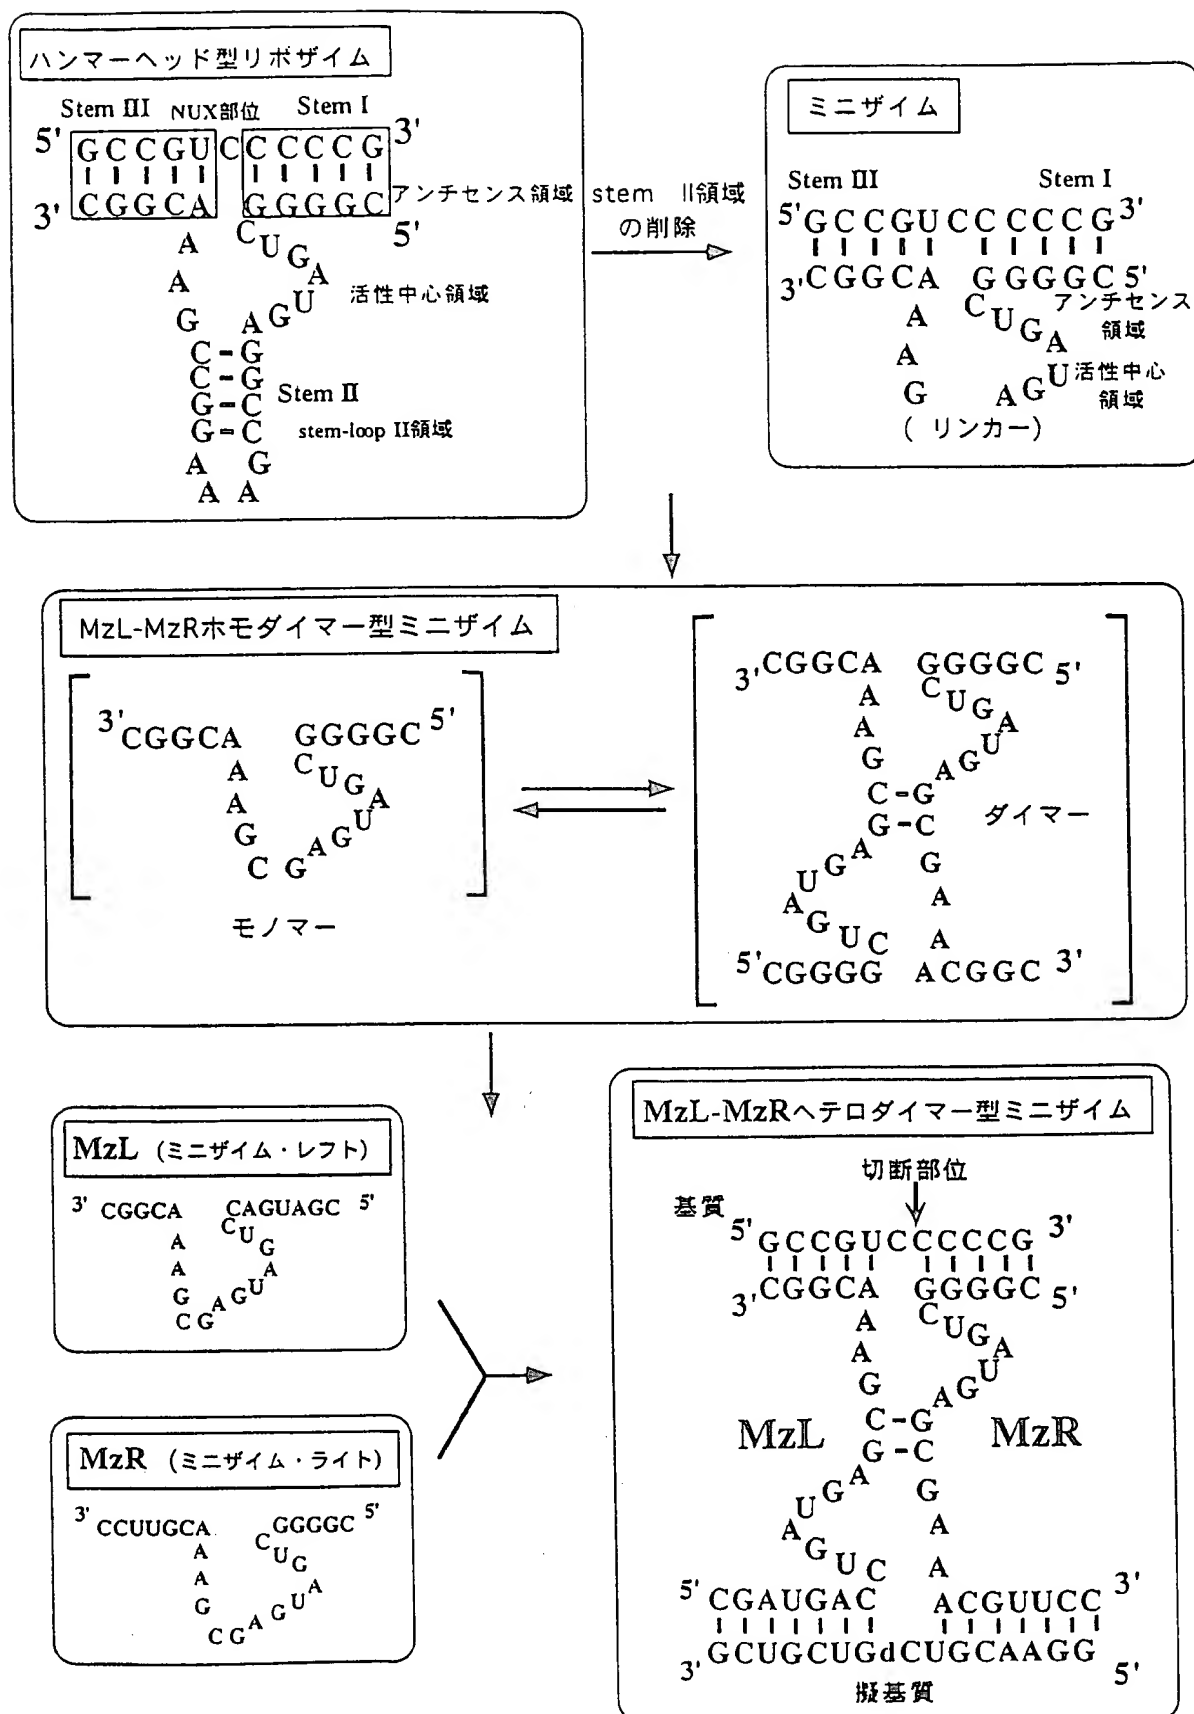 ハンマーヘッド型リボザイム
Stem III NUX部位 Stem I
5' GCCGU C CCCCG 3'
3' CGGCA GGGGC 5'
アンチセンス領域
A CUGA
A U 活性中心領域
G AG
C-G
C-G
G-C Stem II
G-C stem-loop II領域
A G
A A
stem II領域
の削除
ミニザイム
Stem III Stem I
5'GCCGUCCCCCG3'
3'CGGCA GGGGC5'
A CUGA アンチセンス
領域
A U 活性中心
領域
G AG
( リンカー)
MzL-MzRホモダイマー型ミニザイム
3'CGGCA GGGGC5'
A CUGA
A U
G G
C G A
モノマー
3'CGGCA GGGGC 5'
A CUGA
A U
G AG
C-G
G-C ダイマー
A G
G A
U A
A
GUC
5'CGGGG ACGGC 3'
MzL (ミニザイム・レフト)
3' CGGCA CAGUAGC 5'
A CUGA
A U
G G
C G A
MzR (ミニザイム・ライト)
3' CCUUGCA GGGGC 5'
A CUGA
A U
G G
C G A
MzL-MzRヘテロダイマー型ミニザイム
切断部位
基質 5' GCCGUCCCCCG 3'
3'CGGCA GGGGC 5'
A CUGA
A U
G AG
C-G
MzL G-C MzR
A G
G A
U A
A
GUC
5' CGAUGAC ACGUUCC 3'
3' GCUGCUGdCUGCAAGG 5'
擬基質